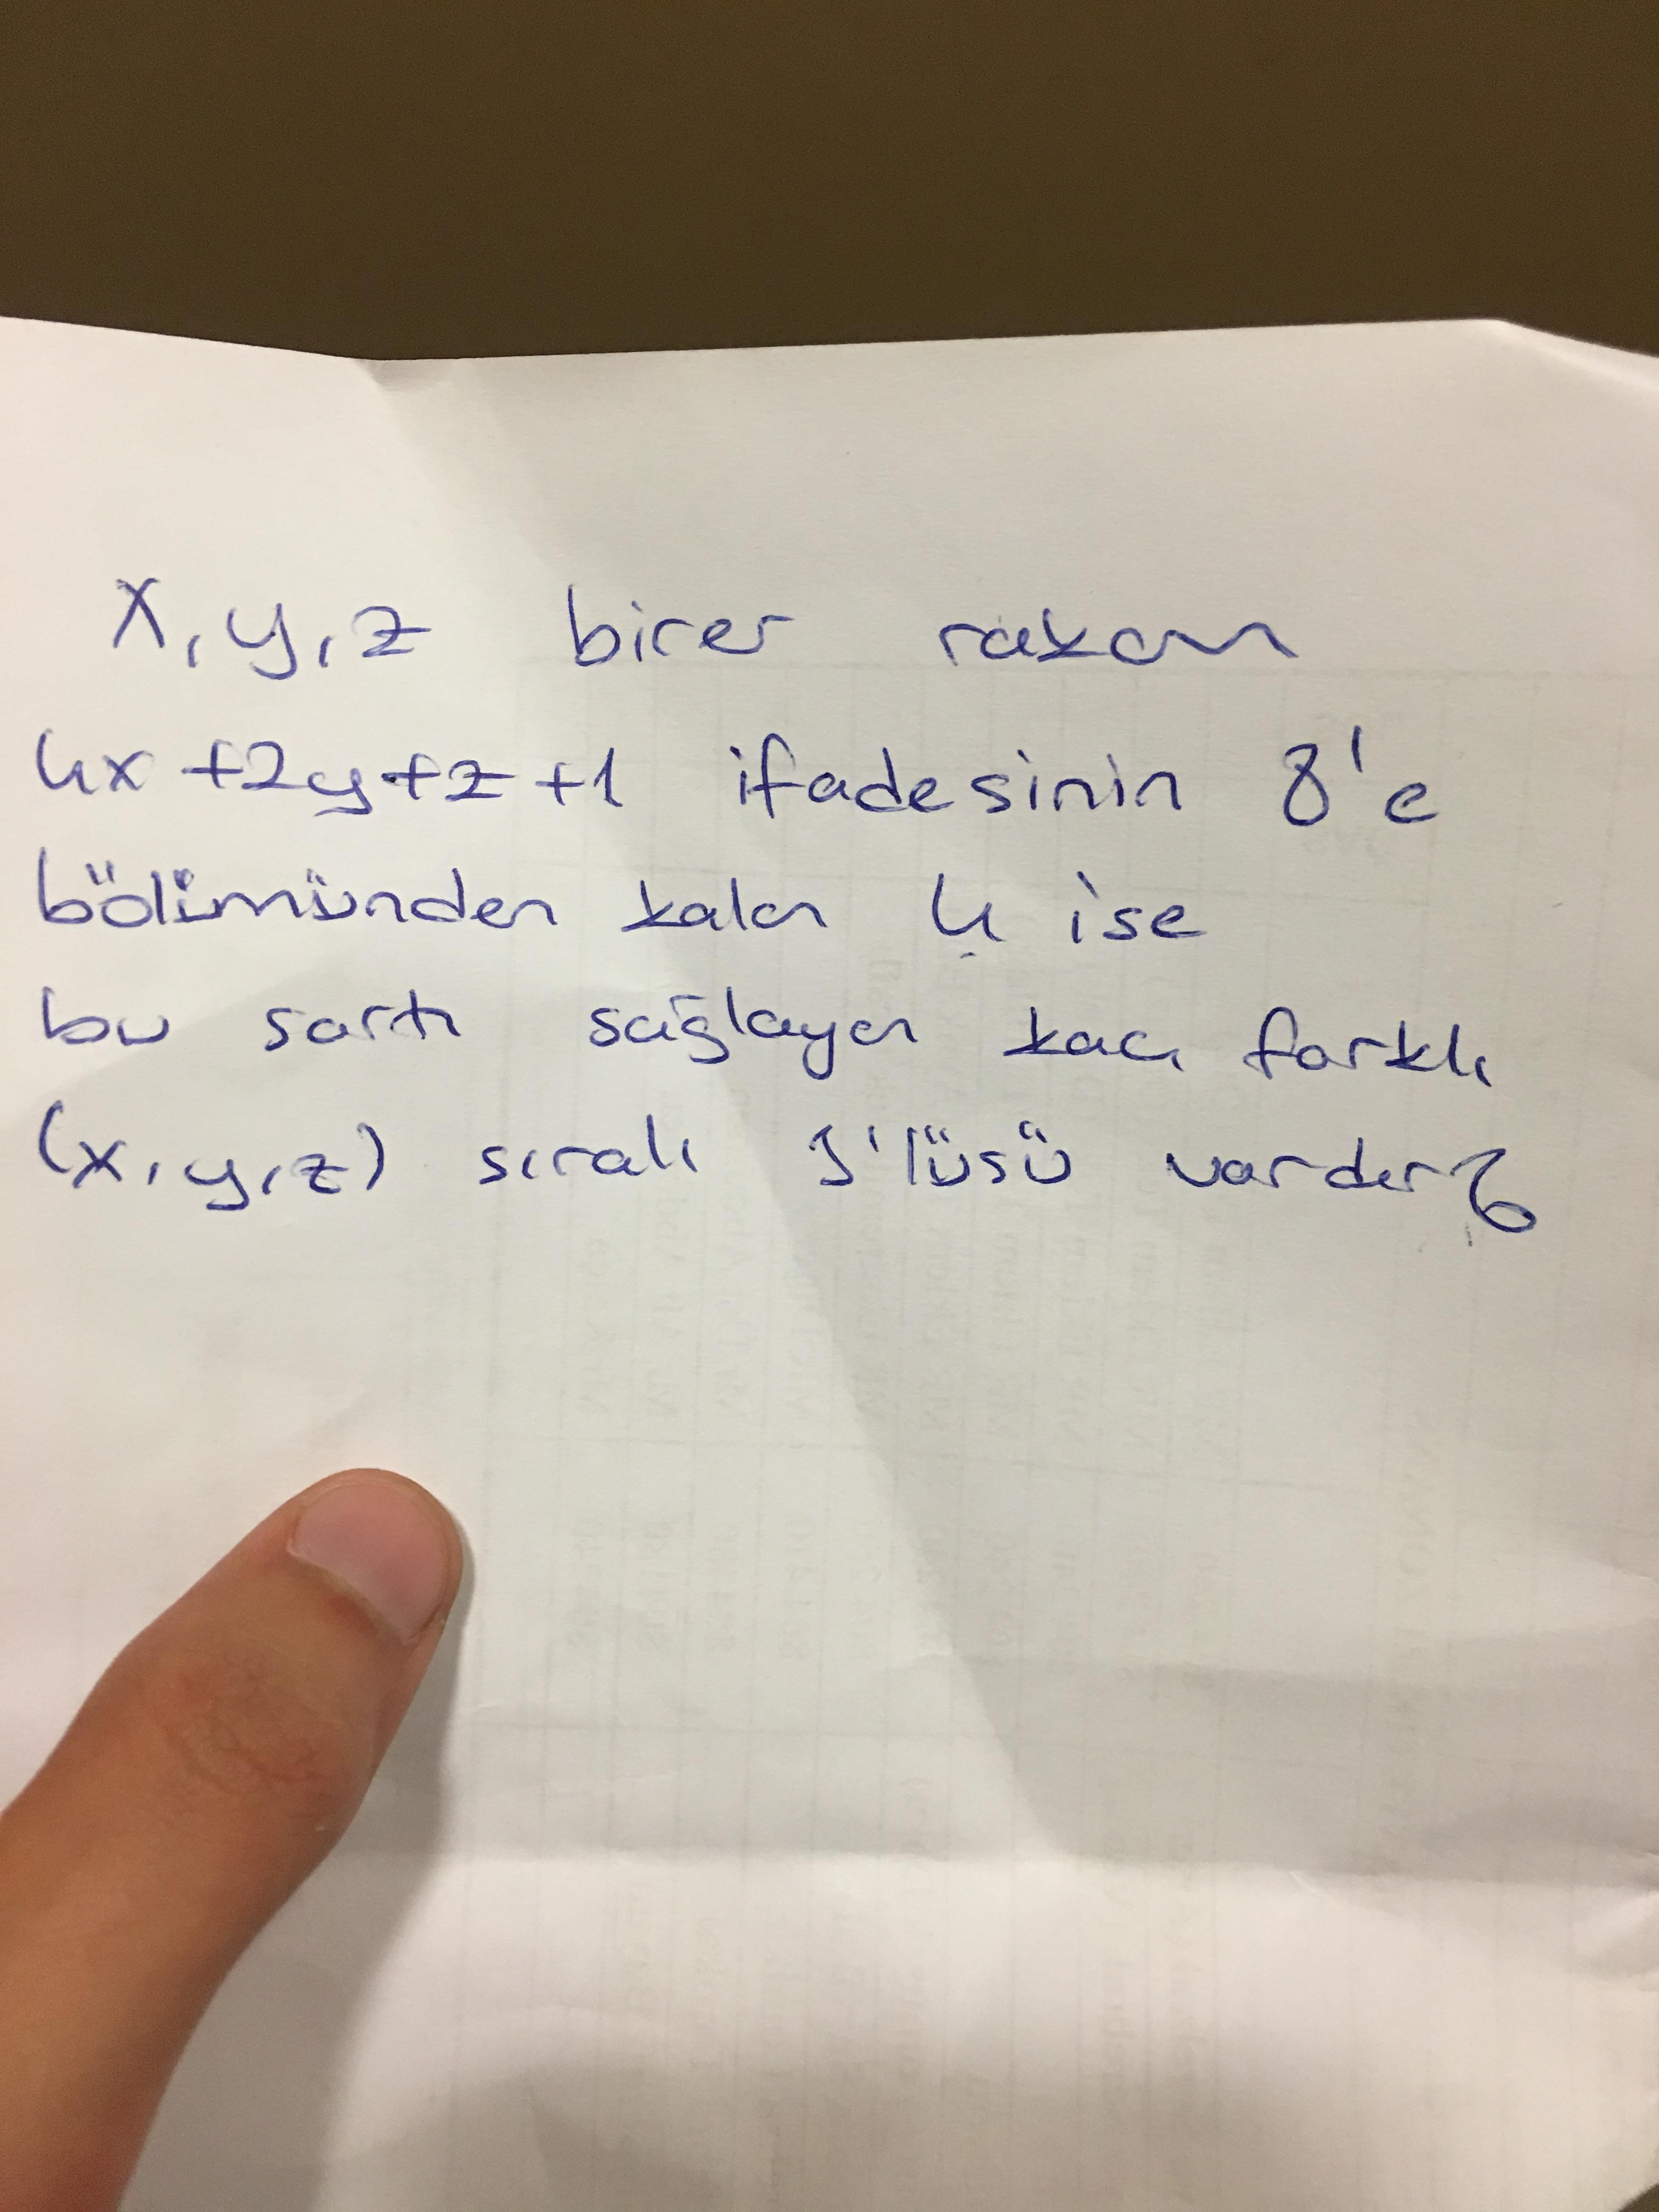 x, y, z birer rakam
4x +2y+z+1 ifadesinin 8'e
bölümünden kalan 4 ise
bu şartı sağlayan kaç farklı
(x, y, z) sıralı 3'lüsü vardır?